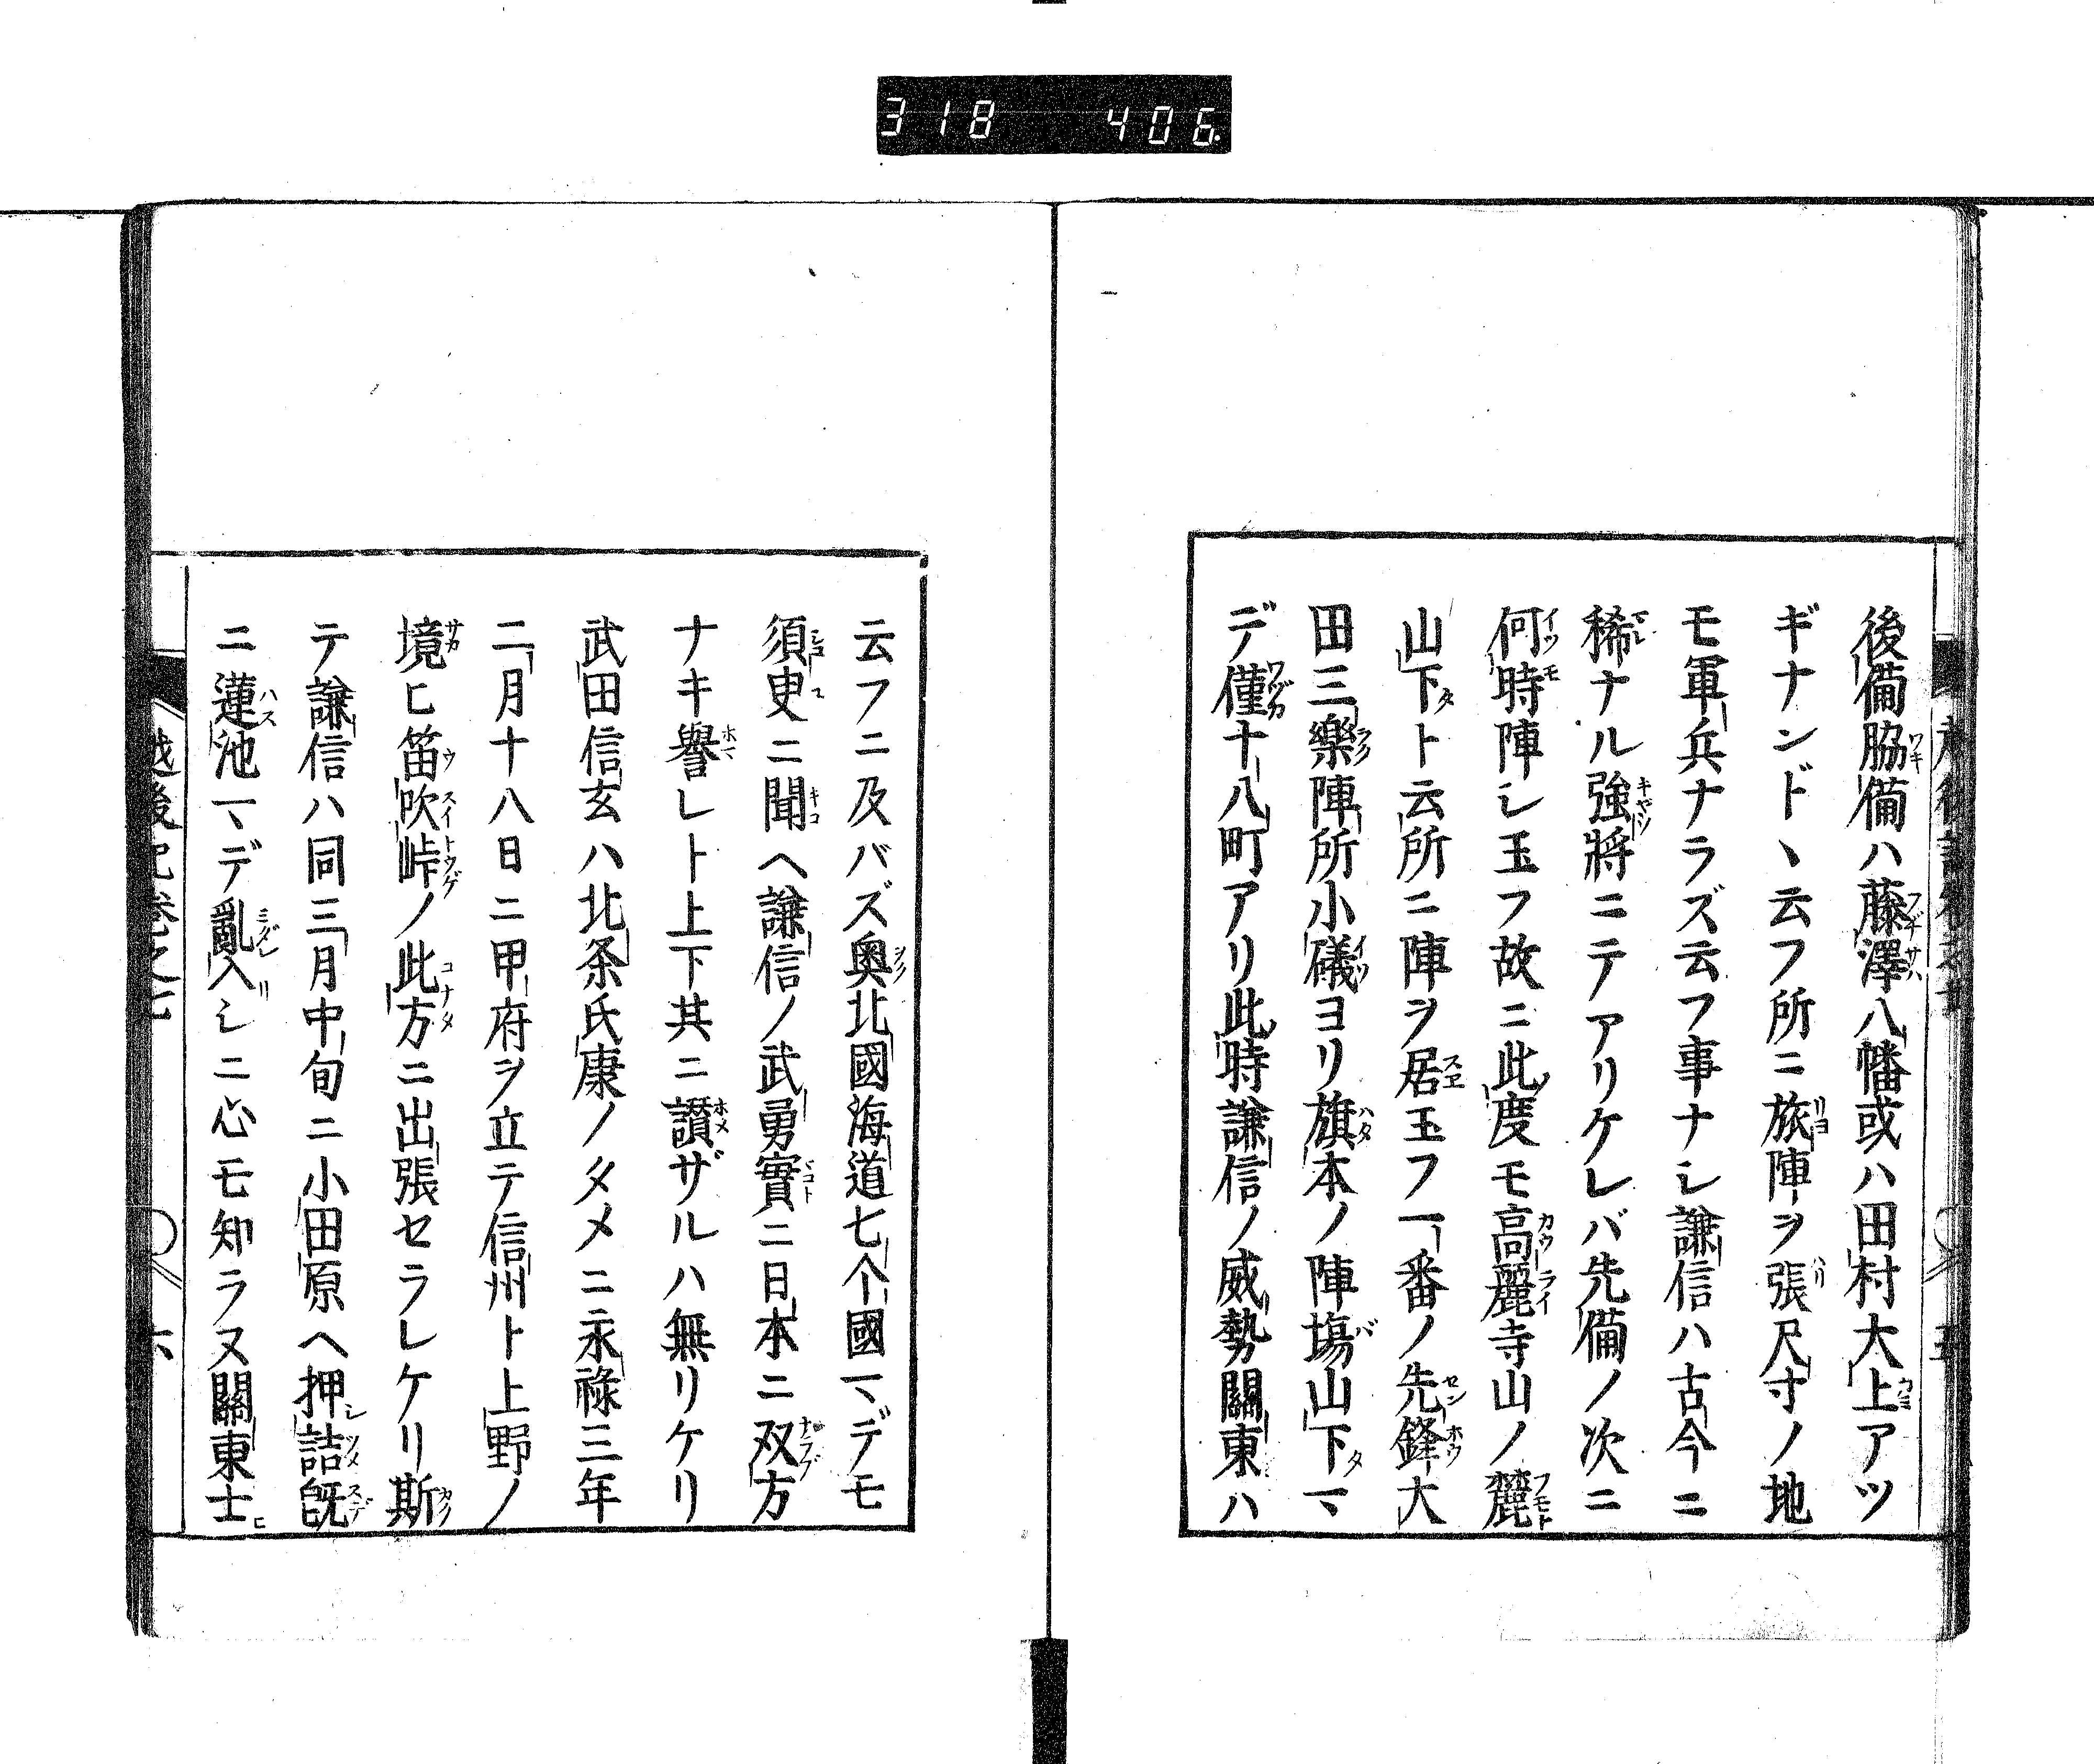 318 406
後備脇備ハ藤澤八幡或ハ田村大上アツ
ギナンドヽ云フ所ニ旅陣ヲ張尺寸ノ地
モ軍兵ナラズ云フ事ナシ謙信ハ古今ニ
稀ナル強將ニテアリケレバ先備ノ次ニ
何時陣シ玉フ故ニ此度モ高麗寺山ノ麓
山下ト云所ニ陣ヲ居玉フ一番ノ先鋒大
田三樂陣所小礒ヨリ旗本ノ陣塲山下マ
デ僅十八町アリ此時謙信ノ威勢關東ハ
云フニ及バズ奥北國海道七个國マデモ
須叟ニ聞ヘ謙信ノ武勇實ニ日本ニ双方
ナキ譽レト上下其ニ讃ザルハ無リケリ
武田信玄ハ北条氏康ノタメニ永祿三年
二月十八日ニ甲府ヲ立テ信州ト上野ノ
境ヒ笛吹峠ノ此方ニ出張セラレケリ斯
テ謙信ハ同三月中旬ニ小田原ヘ押詰既
ニ蓮池マデ亂入シニ心モ知ラヌ關東士
越後記卷之七 六